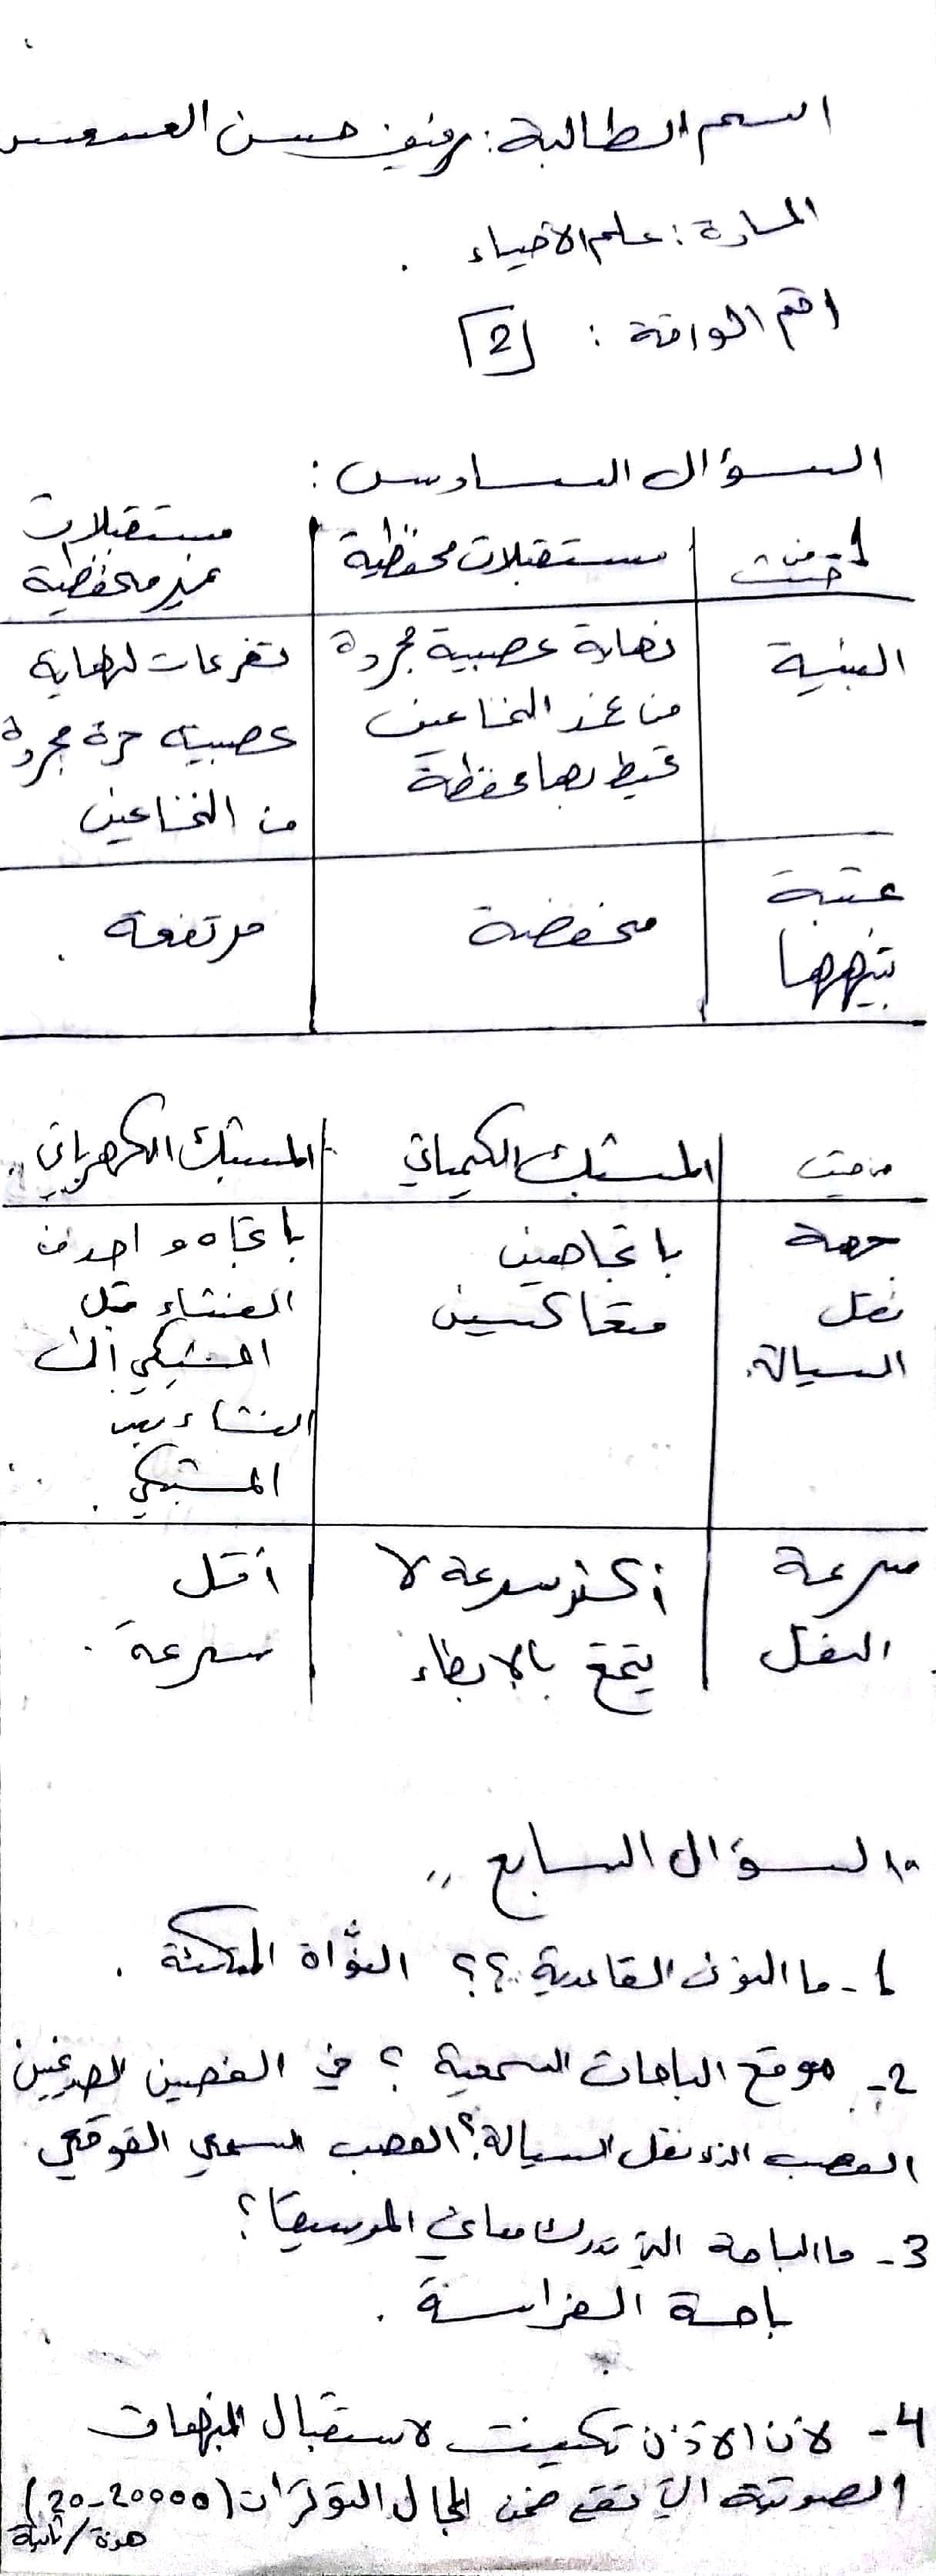 اسم الطالبة: حسن
المادة: علم الأحياء.
رقم الورقة: 2
السؤال السادس:
1- من حيث
مستقبلات محفظية
مستقبلات غير محفظية
البنية
نهاية عصبية مجردة
من غمد النخاعين
تحيط بها محفظة
تفرعات لنهاية
عصبية حرة مجردة
من النخاعين
عتبة
تنبيهها
منخفضة
مرتفعة.
من حيث
المشبك الكيميائي
المشبك الكهربائي
جهة
نقل
السيالة.
باتجاهين
متعاكسين
باتجاه واحد من
الغشاء قبل
المشبكي إلى
الغشاء بعد
المشبكي.
سرعة
النقل
أكثر سرعة لا
يتمتع بالإبطاء
أقل
سرعة.
السؤال السابع,,
1- ما النوى القاعدية؟؟ النواة المتكئة.
2- موقع الباحات السمعية؟ في الفصين الصدغيين
العصب الذي نقل السيالة؟ العصب السمعي القوقعي
3- ما الباحة التي تدرك معاني الموسيقا؟
باحة الفراسة.
4- لأن الأذن تكيفت لاستقبال المنبهات
الصوتية التي تقع ضمن المجال التوترات (20-20000)
هزة/ثانية